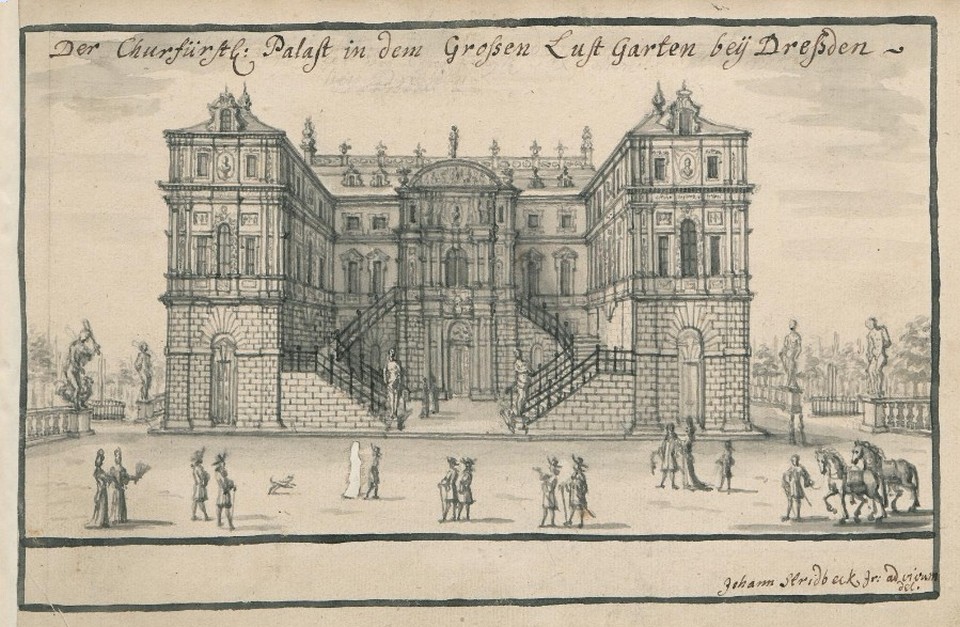 Der Churfürstl: Palast in dem Großen Lust Garten beÿ Dreßden ~
Johann Stridbeck Jr: ad vivum
del.